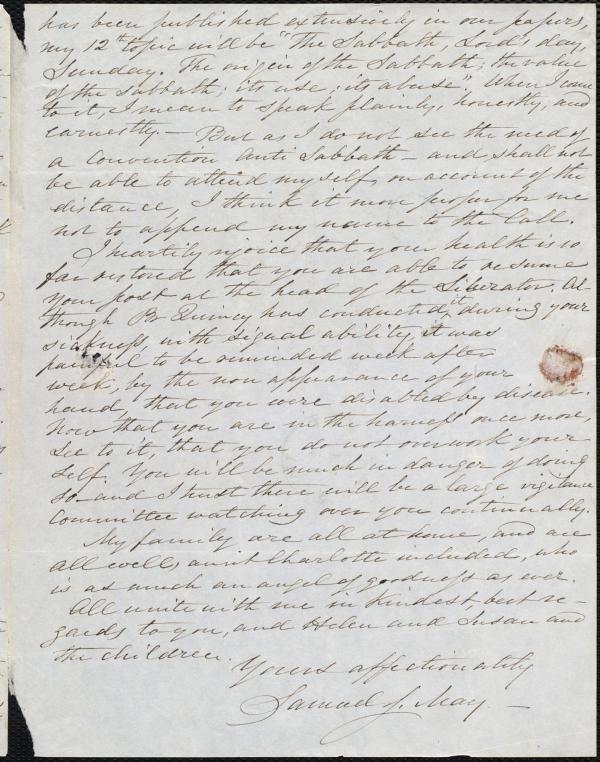 has been published extensively in our papers,
my 12th topic will be "The Sabbath, Lord's day,
Sunday. The origin of the Sabbath; the value
of the Sabbath; its use; its abuse". When I come
to it, I mean to speak plainly, honestly, and
earnestly. — But as I do not see the need of
a Convention Anti Sabbath — and shall not
be able to attend myself, on account of the
distance, I think it more proper for me
not to append my name to the Call.
I heartily rejoice that your health is so
far restored that you are able to resume
your post at the head of the Liberator. Al-
though Br Quincy has conducted it, during your
sickness, with signal ability, it was
painful to be reminded week after
week, by the non appearance of your
hand, that you were disabled by disease.
Now that you are in the harness once more,
see to it, that you do not overwork your-
self. You will be much in danger of doing
so — and I trust there will be a large vigilance
Committee watching over you continually.
My family are all at home, and are
all well, aunt Charlotte included, who
is as much an angel of goodness as ever.
All unite with me in kindest, best re-
gards to you, and Helen and Susan and
the children.
Yours affectionately
Samuel J. May. —